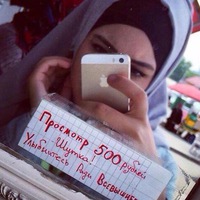 Просмотр 500 рублей
Шутка!
Улыбнитесь Ради Всевышнего